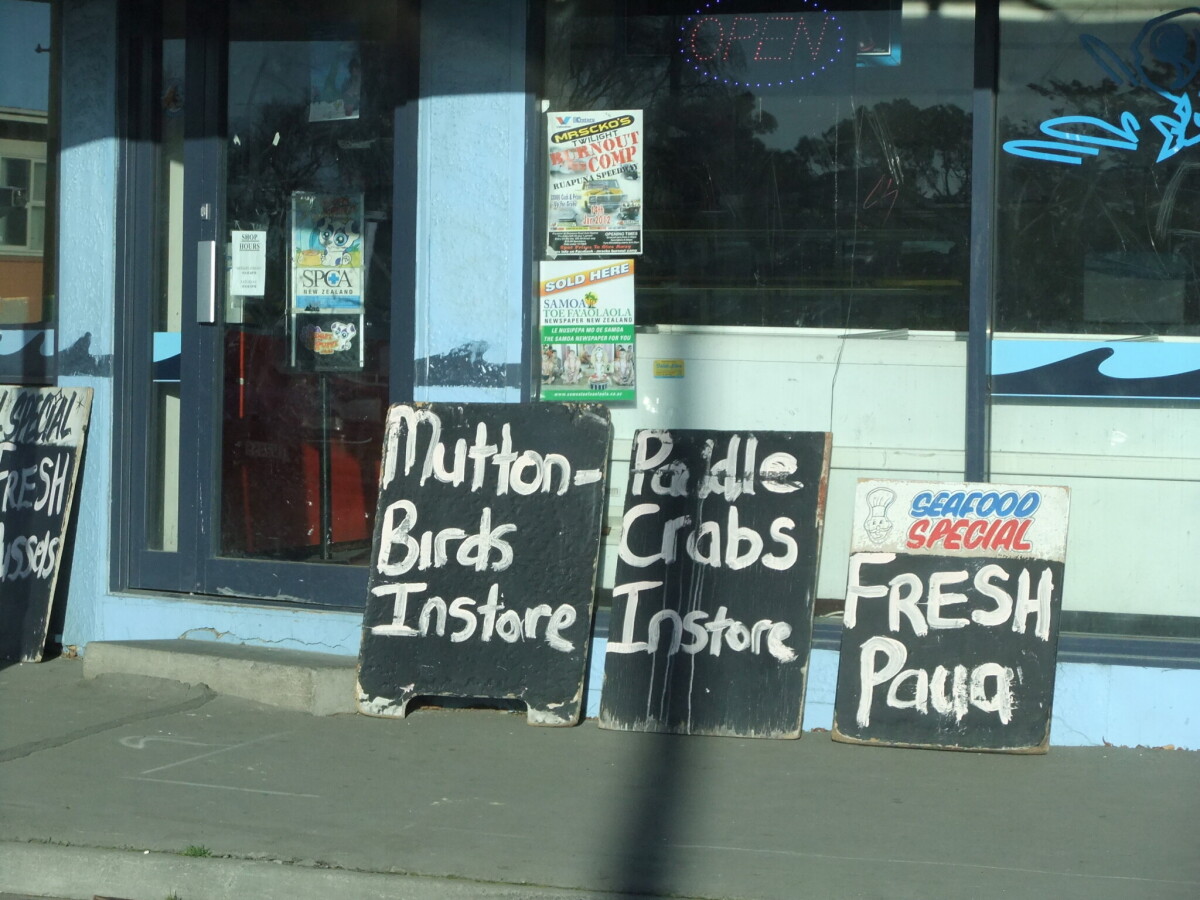 OPEN
MRSCKO'S
TWILIGHT
BURNOUT
COMP
RUAPUNA SPEEDWAY
SHOP
HOURS
SPCA
NEW ZEALAND
SOLD HERE
SAMOA
TOE FA'AOLAOLA
NEWSPAPER NEW ZEALAND
LE NUSIPEPA MO OE SAMOA
THE SAMOA NEWSPAPER FOR YOU
SPECIAL
FRESH
Mussels
Mutton-
Birds
Instore
Paddle
Crabs
Instore
SEAFOOD
SPECIAL
FRESH
Paua